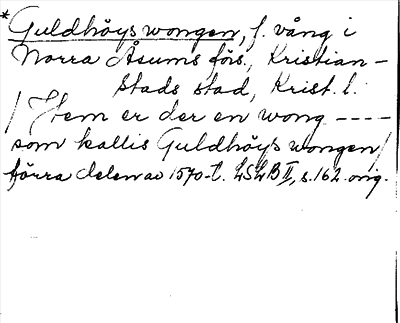 * Guldhöys wongen, f. vång i
Norra Åsums förs., Kristian-
stads stad, Krist. l.
/ Item er der en wong ----
som kallis Guldhöys wongen/
förra delen av 1570-t. LSLB II, s. 162. orig.